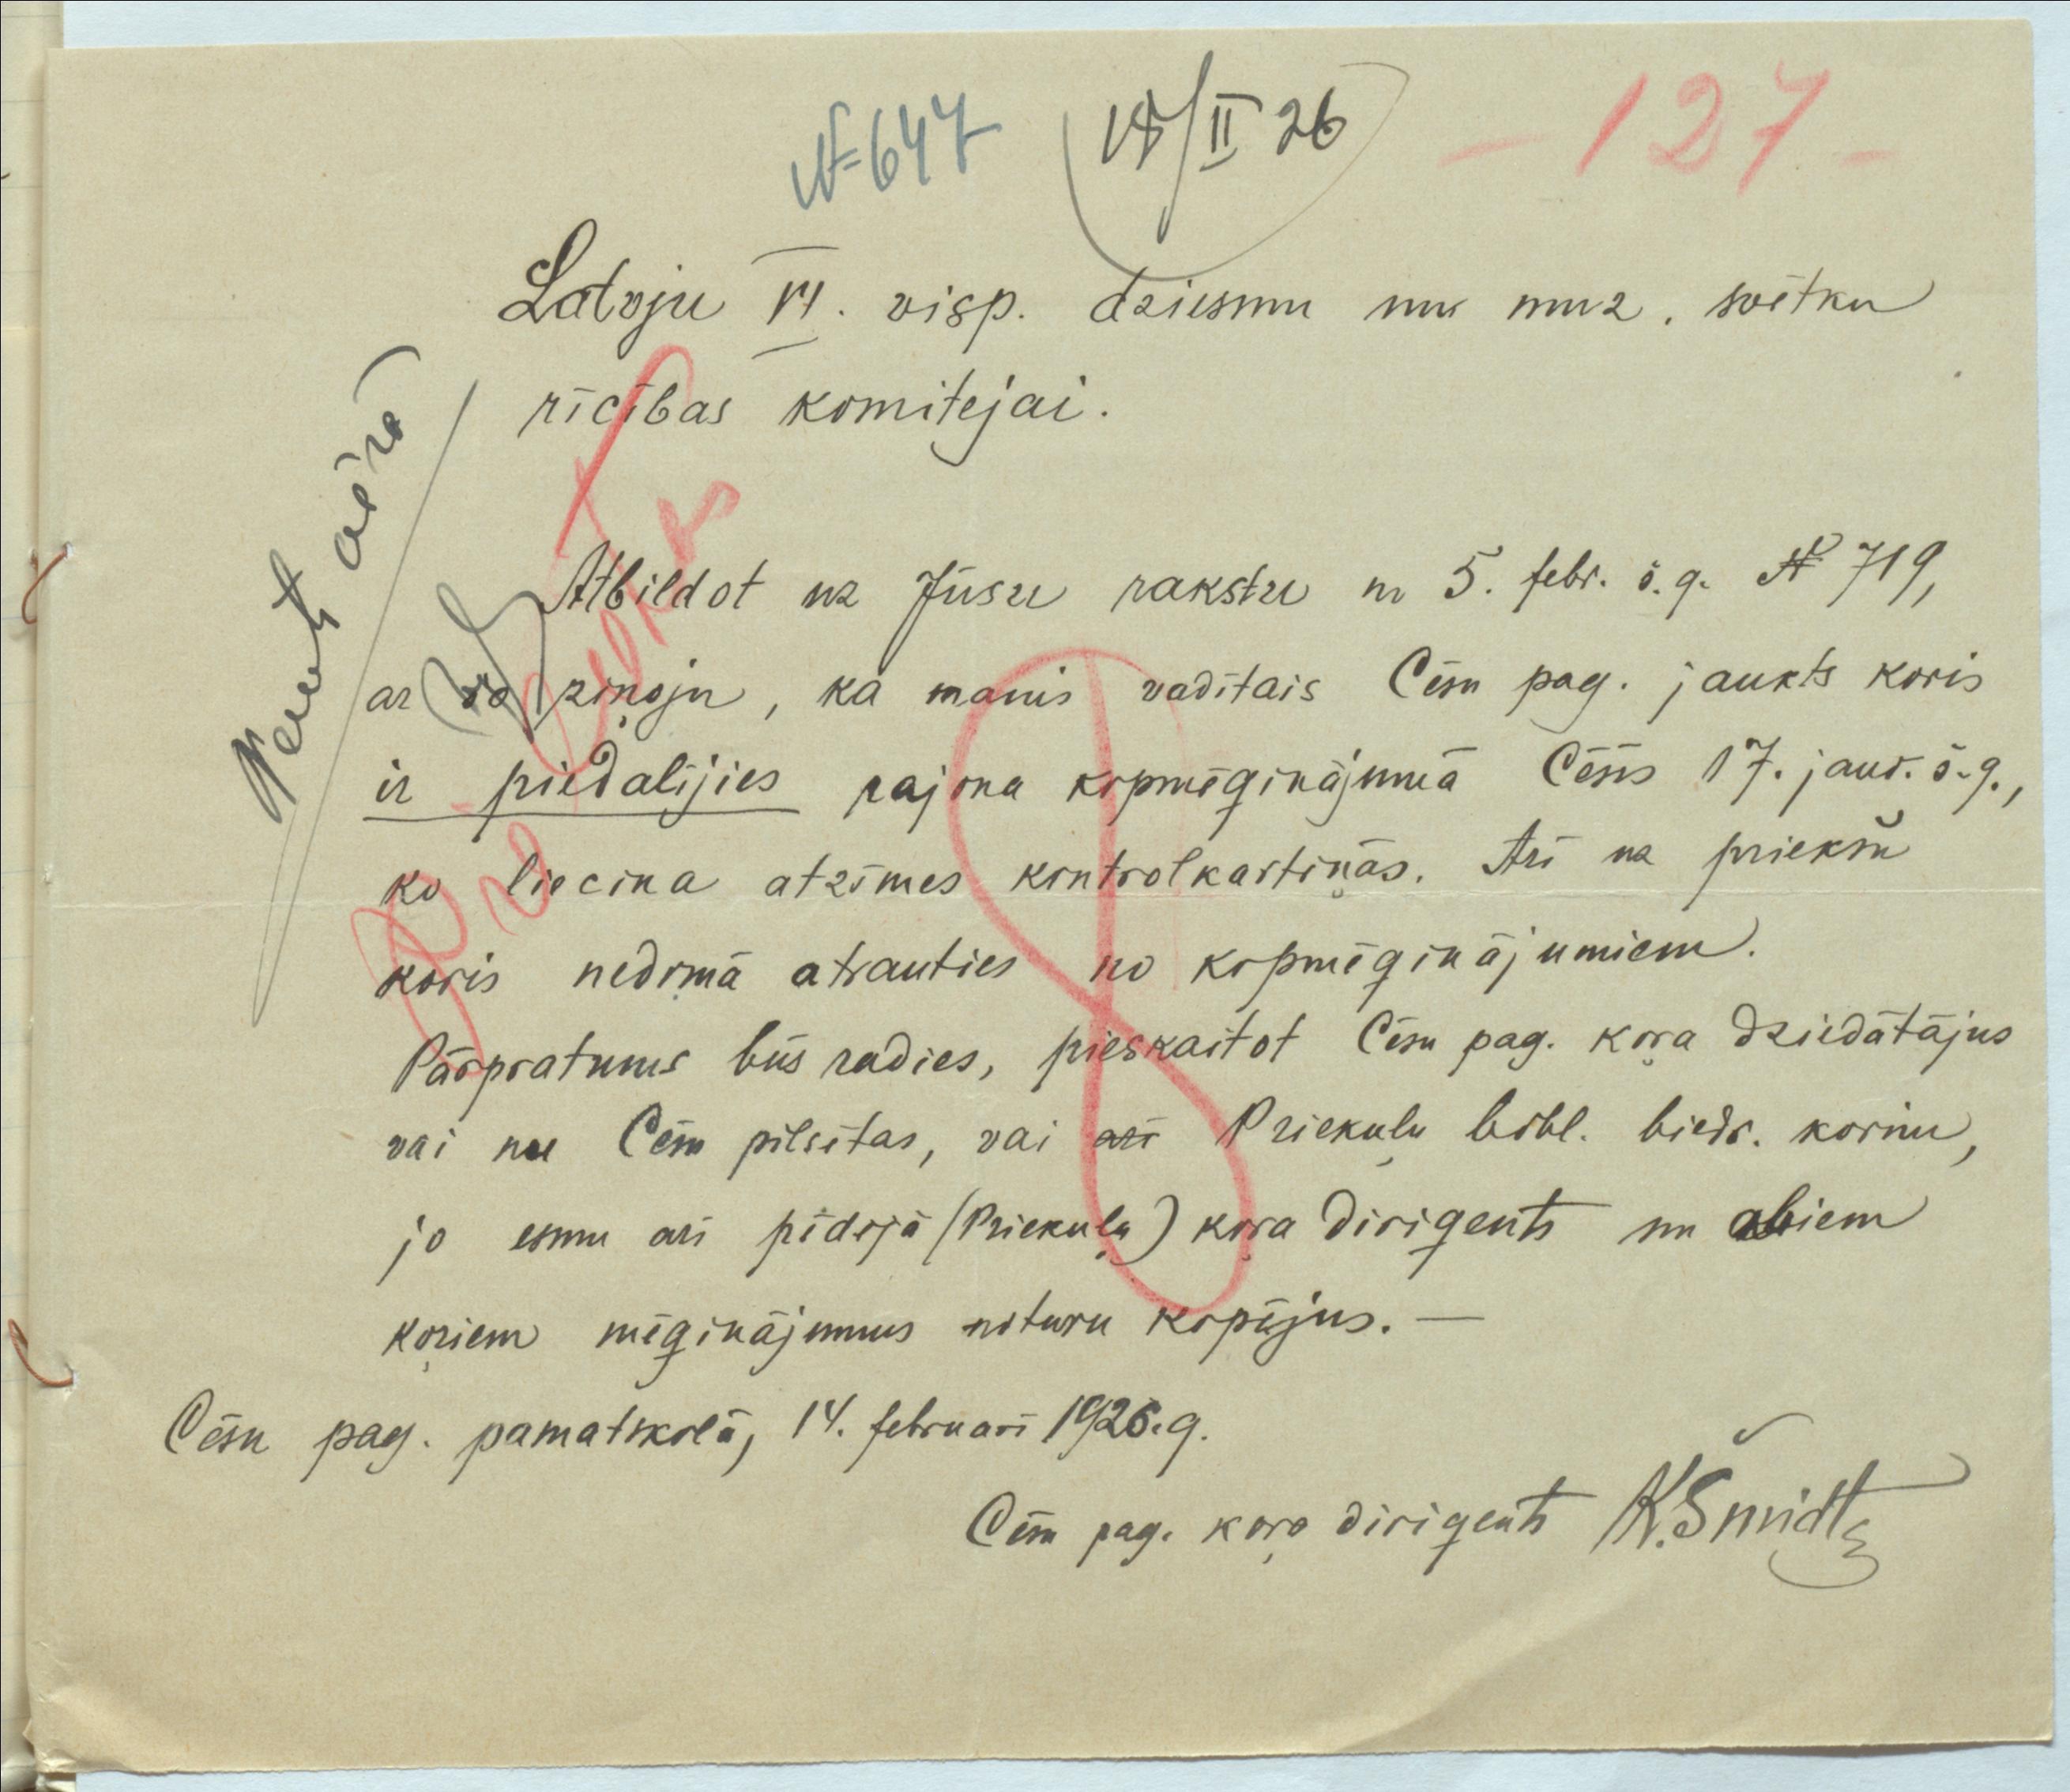 № 647 18/II 26 - 127 -
Latvju VI. visp. dziesmu un muz. svētku
rīcības komitejai.
Atbildot uz Jūsu rakstu no 5. febr. š.g. № 719,
ar šo ziņoju, ka manis vadītais Cēsu pag. jaukts koris
ir piedalījies rajona kopmēģinājumā Cēsīs 17. janv. š.g.,
ko liecina atzīmes kontrolkartiņās. Arī uz priekšu
koris nedomā atrauties no kopmēģinājumiem.
Pārpratums būs radies, pieskaitot Cēsu pag. koŗa dziedātājus
vai nu Cēsu pilsētas, vai arī Priekuļu bibl. biedr. korim,
jo esmu arī pēdējā (Priekuļu) koŗa dirigents un abiem
koŗiem mēģinājumus noturu kopējus. —
Cēsu pag. pamatskolā, 14. februarī 1926.g.
Cēsu pag. koŗa dirigents K. Šmidts
Ņemt vērā